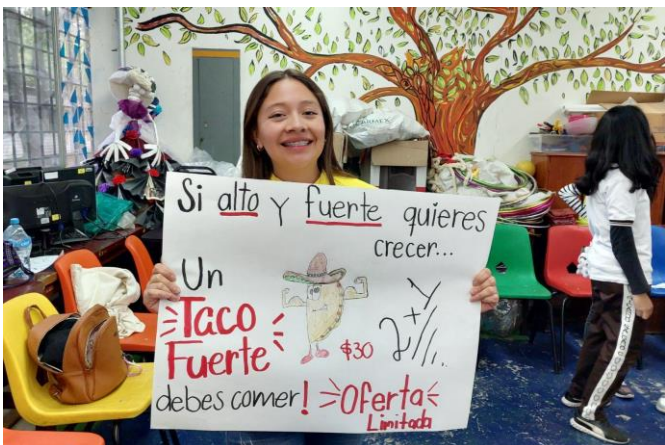 Si alto y fuerte quieres
crecer...
Un
Taco
Fuerte
$30
debes comer!
Oferta
Limitada